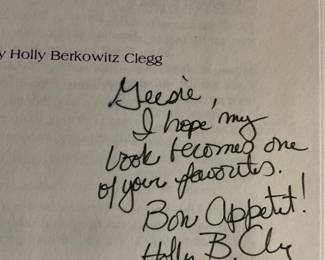 y Holly Berkowitz Clegg
I hope my
book becomes one
of your favorites.
Bon Appetit!
Holly B. Cly